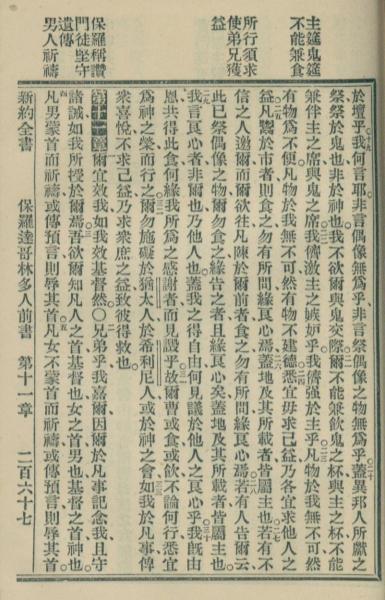 主筵鬼筵
不能兼食
所行須求
使弟兄獲
益
保羅稱讚
門徒堅守
遺傳
男人祈禱
於壇乎我何言耶非言偶像無爲乎非言祭偶像之物無爲乎蓋異邦人所獻之
祭祭於鬼也非於神也我不欲爾與鬼交際爾不能兼飲鬼之杯與主之杯不能
兼伴主之席與鬼之席我儕激主之嫉妒乎我儕强於主乎凡物於我無不可然
有物爲不便凡物於我無不可然有物不建德悉宜毋求己益乃各宜求他人之
益凡鬻於市者則食之勿有所問緣良心焉蓋地及其所載者皆屬主也若有不
信之人邀爾而爾欲往凡陳於爾前者食之勿有所問緣良心焉若有人告爾云
此已祭偶像之物爾勿食之緣告之者且緣良心矣蓋地及其所載者皆屬主也
我言良心者非爾也乃他人也蓋我之得自由何見議於他人之良心乎我旣由
恩共得此食何緣我所爲之感謝者而見譭乎故爾曹或食或飲不論何行悉宜
爲神之榮而行之爾勿施礙於猶太人於希利尼人或於神之會如我於凡事傳
衆喜悅不求己益乃求衆庶之益致彼得救也
第十一章爾宜效我如我效基督然○兄弟乎我嘉爾因爾於凡事記念我且守
諸誡如我所授於爾焉吾欲爾知凡人之首基督也女之首男也基督之首神也
凡男蒙首而祈禱或傳預言則辱其首凡女不蒙首而祈禱或傳預言則辱其首
新約全書 保羅達哥林多人前書 第十一章 二百六十七